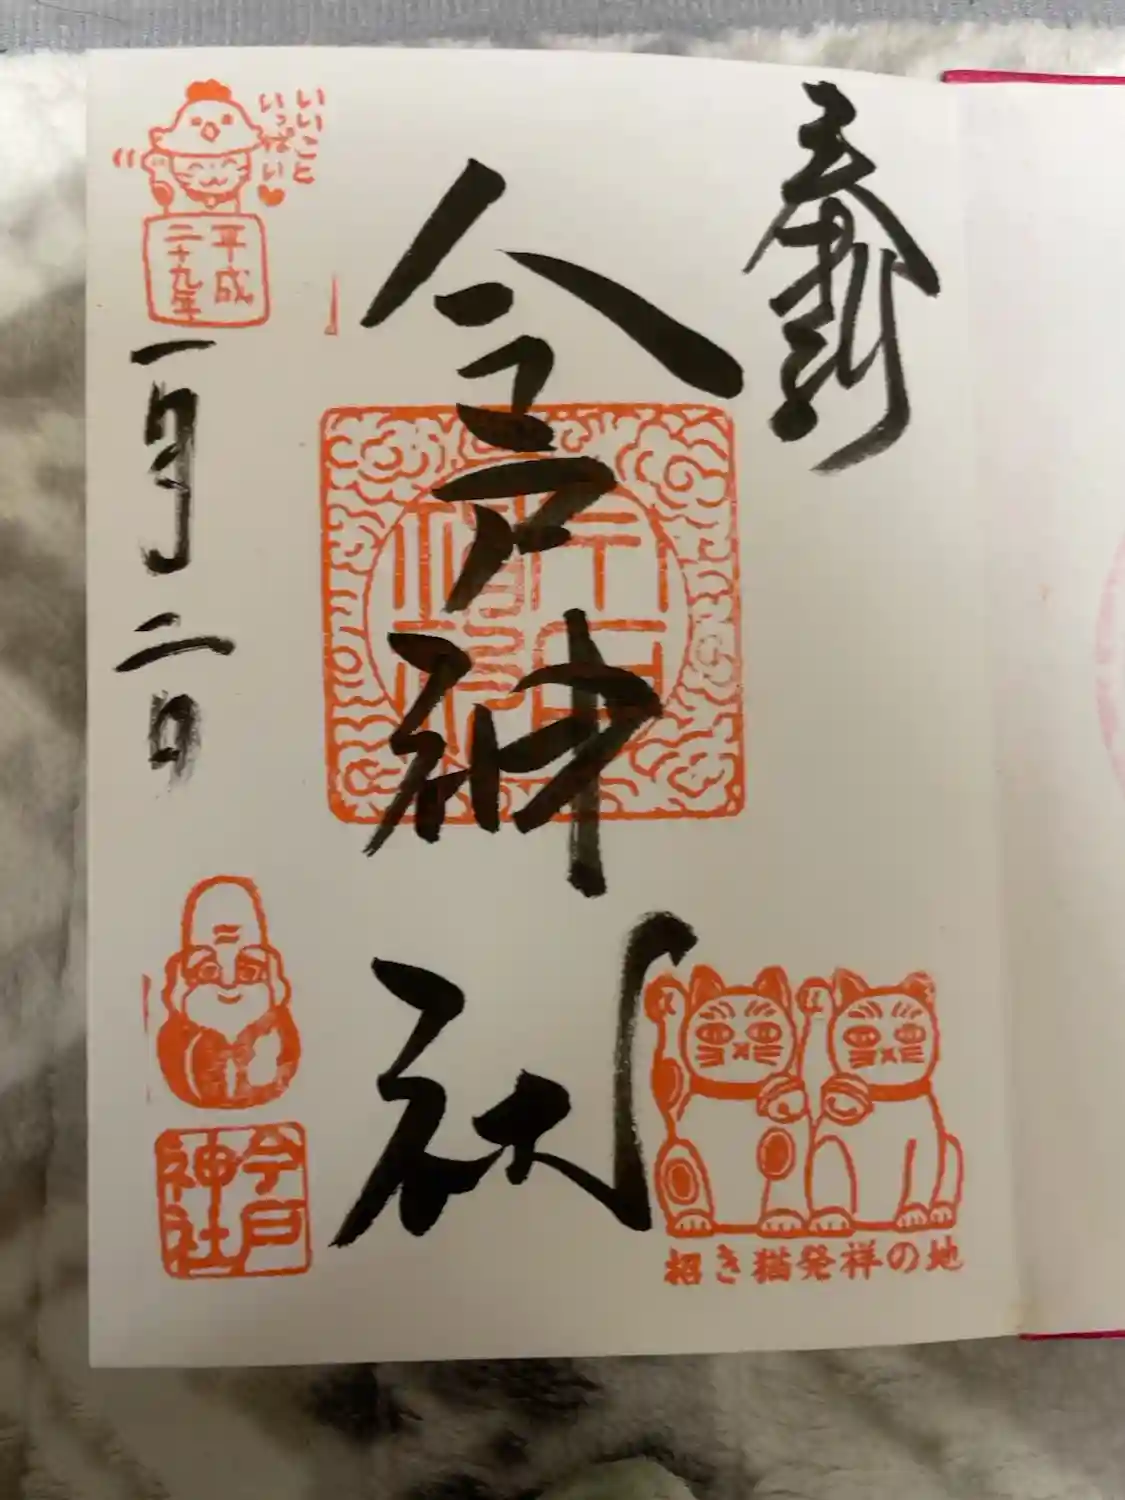 奉拝
今戸神社
今戸神社
招き猫発祥の地
いいこと
いっぱい
平成
二十九年
一月二日
今戸
神社